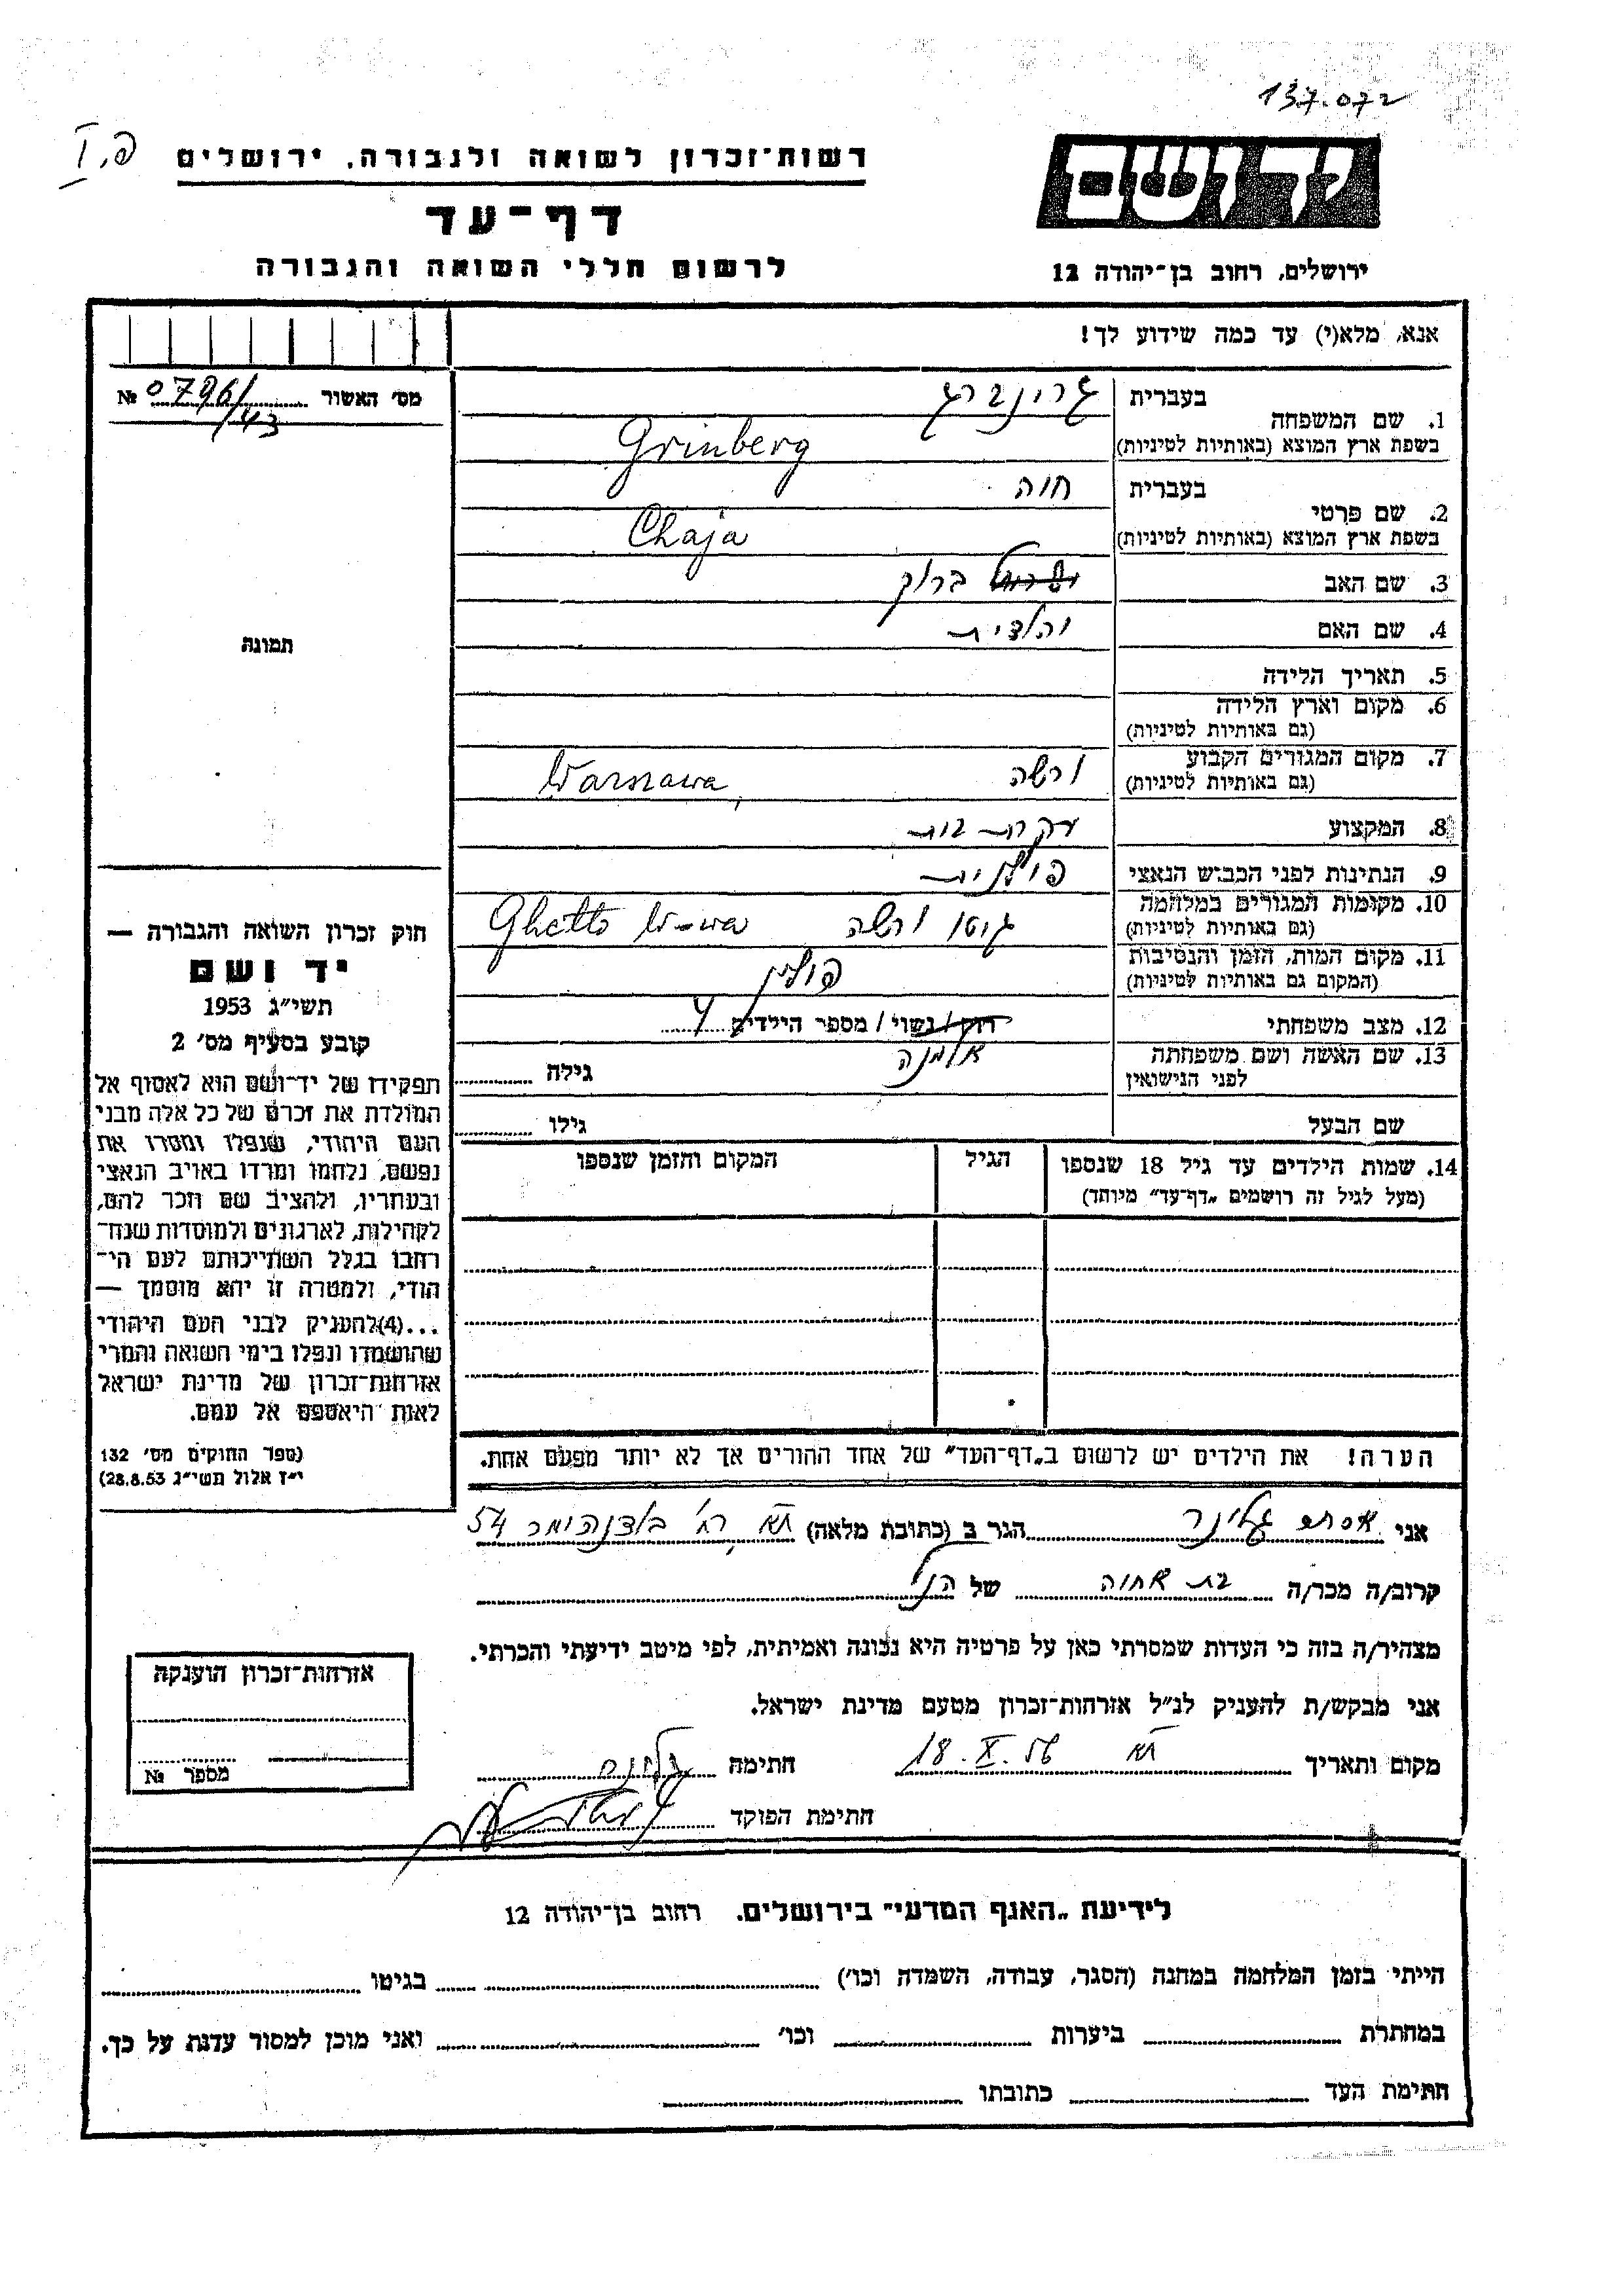 137.072
פ. I
רשות־זכרון לשואה ולגבורה, ירושלים
יד ושם
דף־עד
לרשום חללי השואה והגבורה
ירושלים, רחוב בן־יהודה 12
אנא, מלא(י) עד כמה שידוע לך!
מס׳ האשור 0796/43 №
תמונה
1. שם המשפחה
בעברית גרינברג
בשפת ארץ המוצא (באותיות לטיניות) Grinberg
2. שם פרטי
בעברית חוה
בשפת ארץ המוצא (באותיות לטיניות) Chaja
3. שם האב ברוך
4. שם האם
5. תאריך הלידה
6. מקום וארץ הלידה
(גם באותיות לטיניות)
7. מקום המגורים הקבוע ורשה Warszawa,
(גם באותיות לטיניות)
8. המקצוע עקרת בית
9. הנתינות לפני הכבוש הנאצי פולנית
10. מקומות המגורים במלחמה גיטו ורשה Ghetto W-wa
(גם באותיות לטיניות)
11. מקום המות, הזמן והנסיבות פולין
(המקום גם באותיות לטיניות)
12. מצב משפחתי רוק / נשוי / מספר הילדים 4
אלמנה
13. שם האשה ושם משפחתה
לפני הנישואין
גילה
שם הבעל גילו
14. שמות הילדים עד גיל 18 שנספו הגיל המקום והזמן שנספו
(מעל לגיל זה רושמים „דף־עד״ מיוחד)
הערה! את הילדים יש לרשום ב„דף־העד״ של אחד ההורים אך לא יותר מפעם אחת.
חוק זכרון השואה והגבורה —
יד ושם
תשי״ג 1953
קובע בסעיף מס׳ 2
תפקידו של יד־ושם הוא לאסוף אל
המולדת את זכרם של כל אלה מבני
העם היהודי, שנפלו ומסרו את
נפשם, נלחמו ומרדו באויב הנאצי
ובעוזריו, ולהציב שם וזכר להם,
לקהילות, לארגונים ולמוסדות שנח־
רבו בגלל השתייכותם לעם הי־
הודי, ולמטרה זו יהא מוסמך —
...(4)להעניק לבני העם היהודי
שהושמדו ונפלו בימי השואה והמרי
אזרחות־זכרון של מדינת ישראל
לאות היאספם אל עמם.
(ספר החוקים מס׳ 132
י״ז אלול תשי״ג 28.8.53)
אני אסתר הגר ב (כתובת מלאה) תא רח׳ 54
קרוב/ה מכר/ה בת אחוה של הנ״ל
מצהיר/ה בזה כי העדות שמסרתי כאן על פרטיה היא נכונה ואמיתית, לפי מיטב ידיעתי והכרתי.
אני מבקש/ת להעניק לנ״ל אזרחות־זכרון מטעם מדינת ישראל.
מקום ותאריך תא 18.X.56 חתימה
חתימת הפוקד
אזרחות־זכרון הוענקה
מספר №
לידיעת „האגף המדעי״ בירושלים. רחוב בן־יהודה 12
הייתי בזמן המלחמה במחנה (הסגר, עבודה, השמדה וכו׳) בגיטו
במחתרת ביערות וכו׳ ואני מוכן למסור עדות על כך.
חתימת העד כתובתו